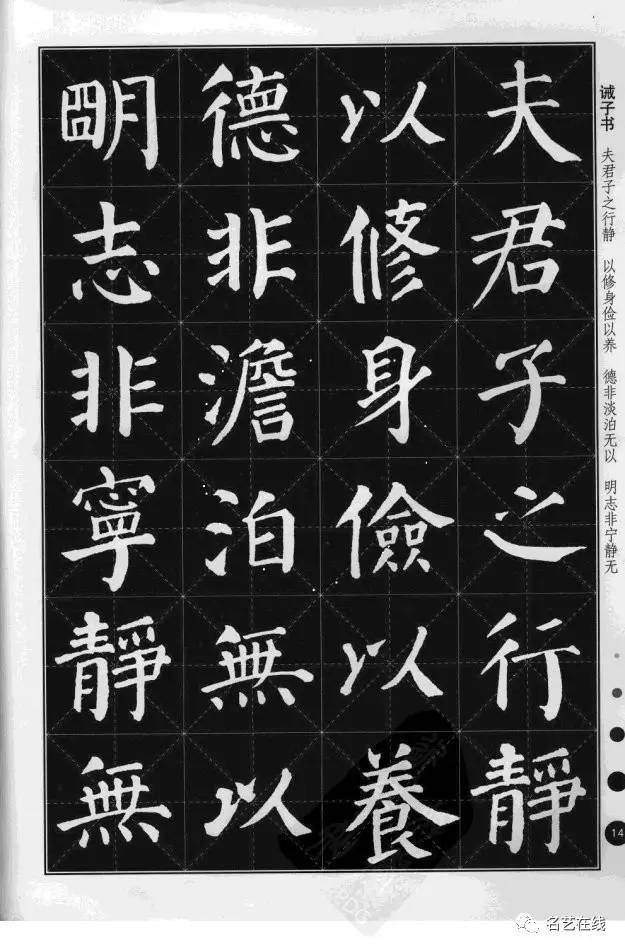 夫君子之行靜
以修身儉以養
德非澹泊無以
明志非寧靜無
诫子书 夫君子之行静 以修身俭以养 德非淡泊无以 明志非宁静无
14
名艺在线